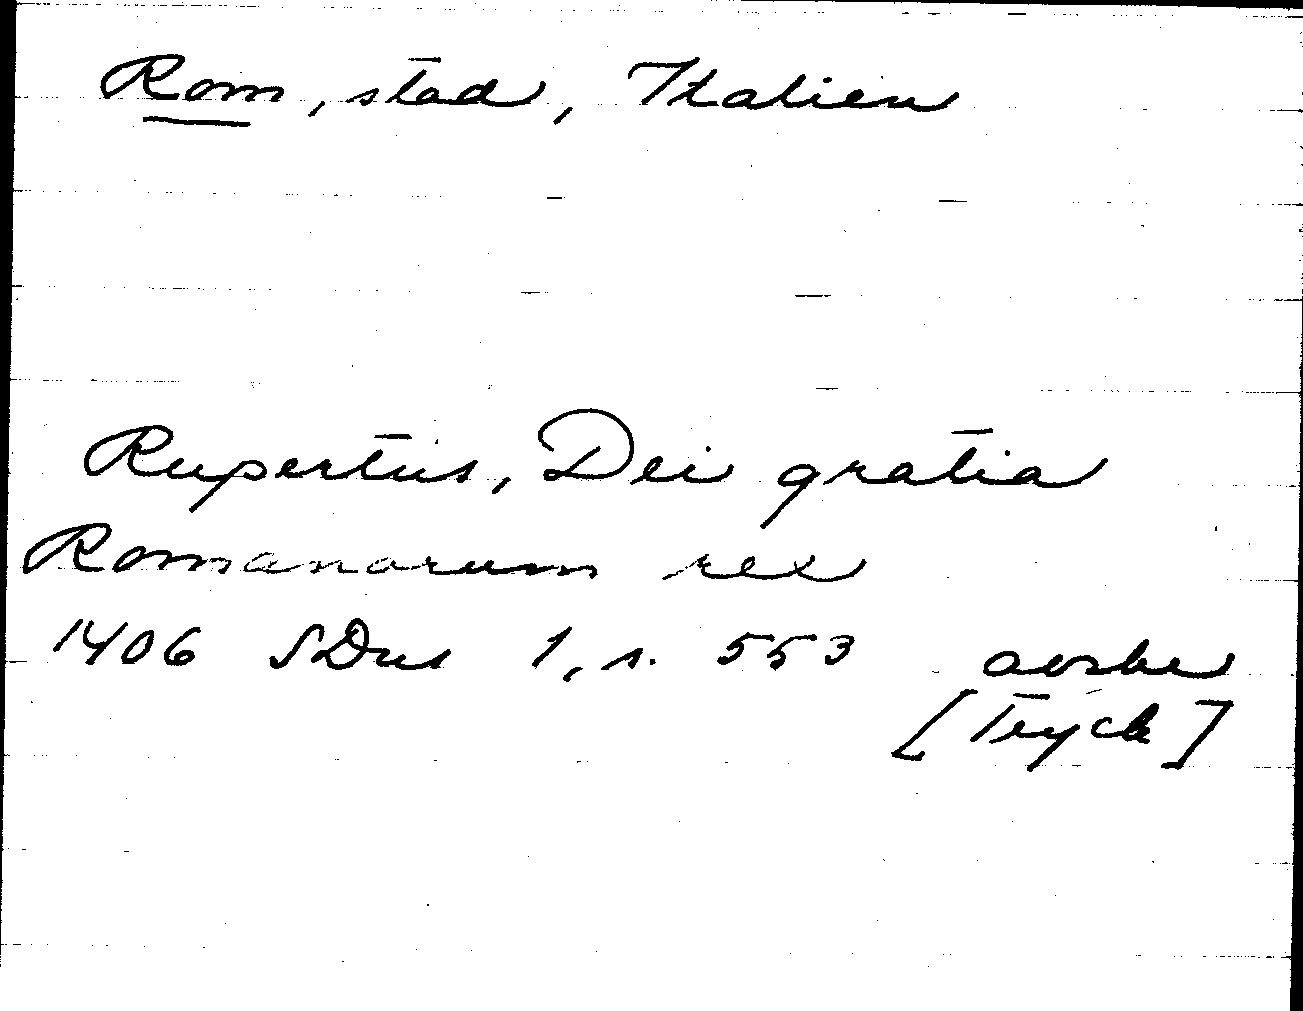 Rom, stad, Italien
Rupertus, Dei gratia
Romanorum rex
1406 SDns 1, s. 553 avskr
[Tryck]